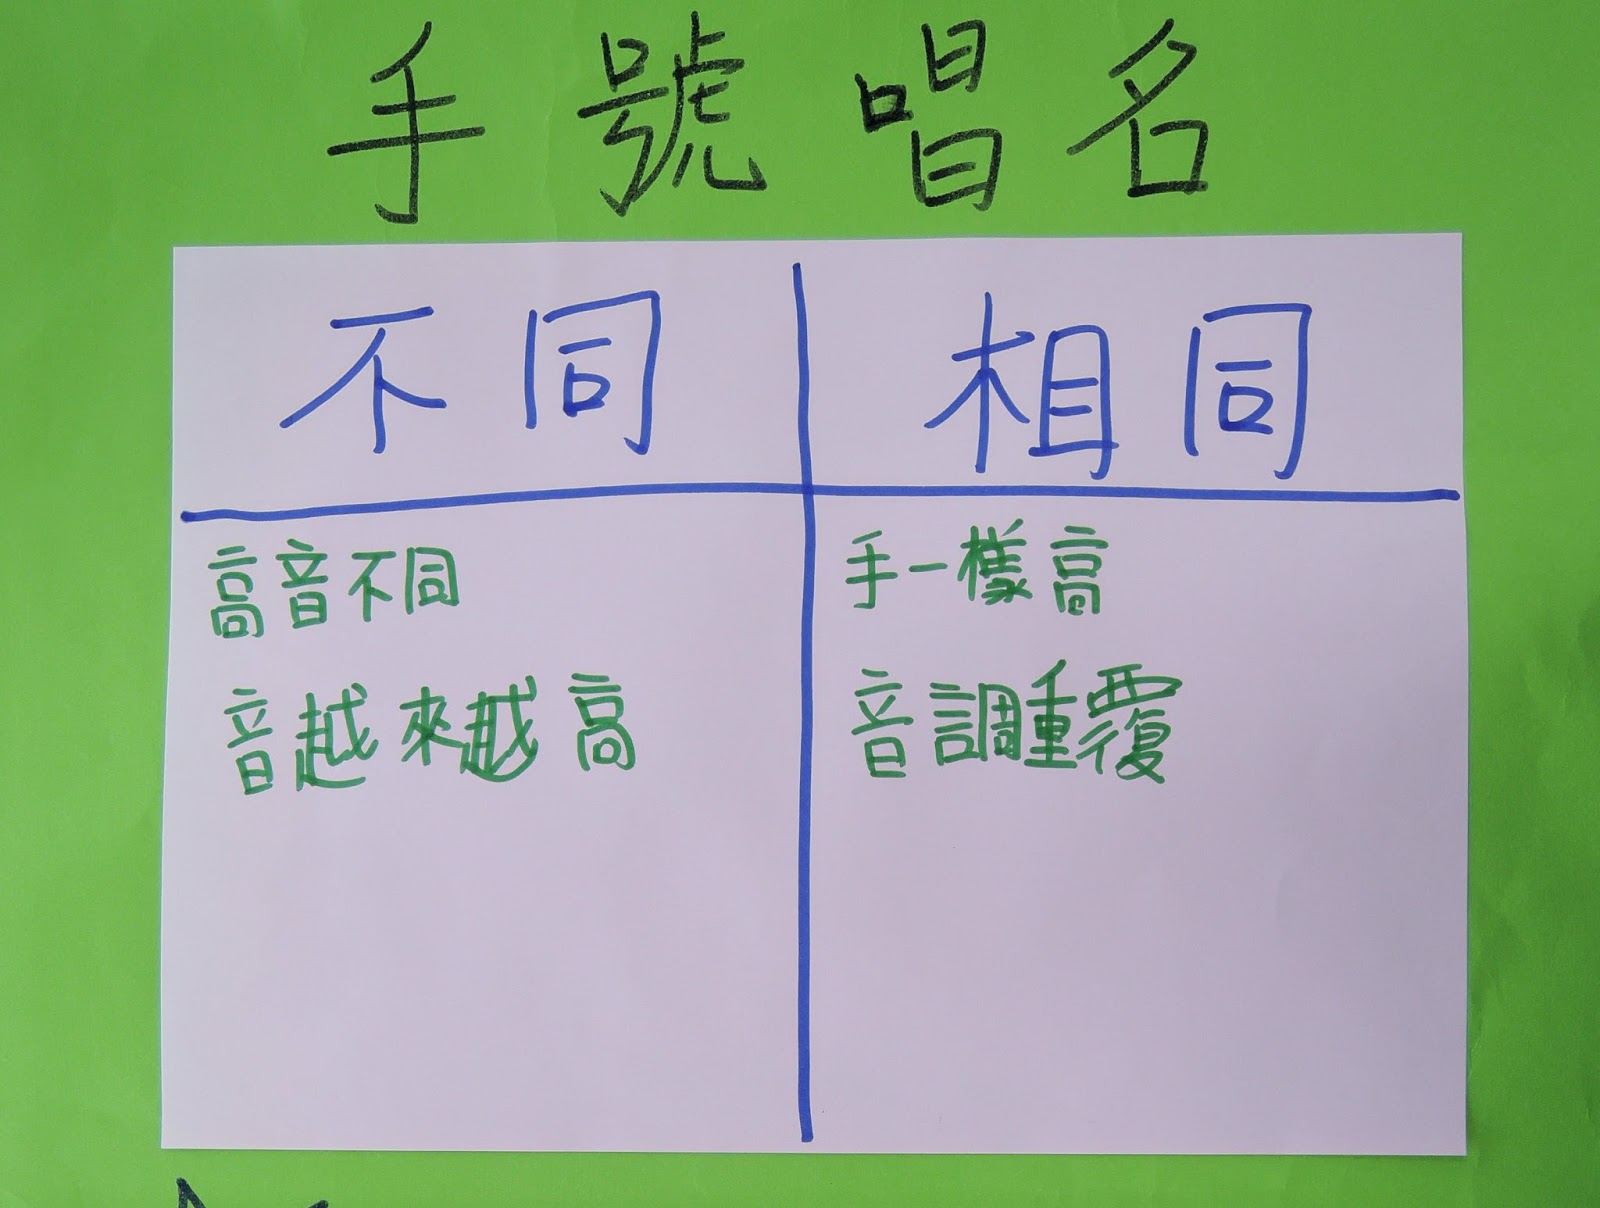 手號唱名
不同
相同
高音不同
音越來越高
手一樣高
音調重覆